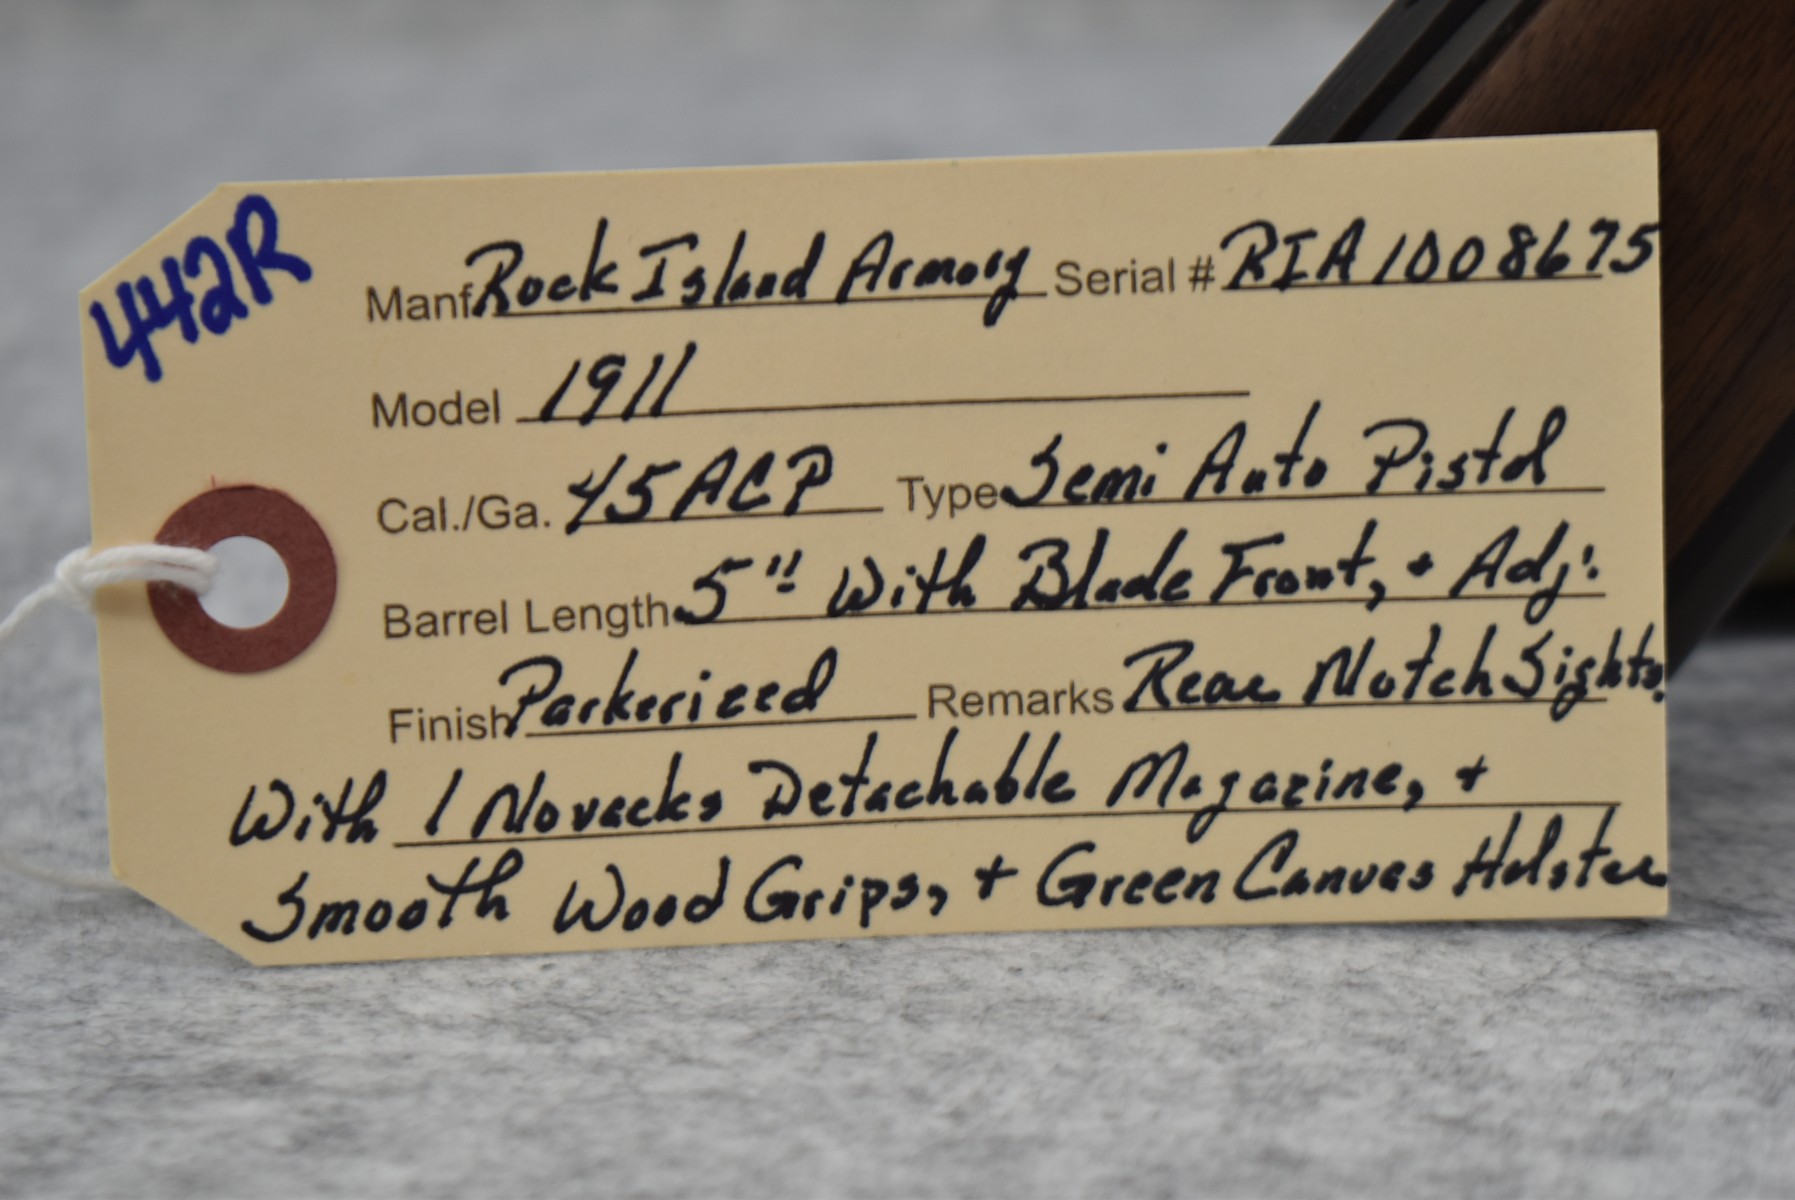 442R
Manf. Rock Island Armory Serial # RIA1008675
Model 1911
Cal./Ga. 45ACP Type Semi Auto Pistol
Barrel Length 5" With Blade Front, + Adj.
Finish Parkerized Remarks Rear Notch Sights.
With 1 Novacks Detachable Magazine, +
Smooth Wood Grips, + Green Canvas Holster